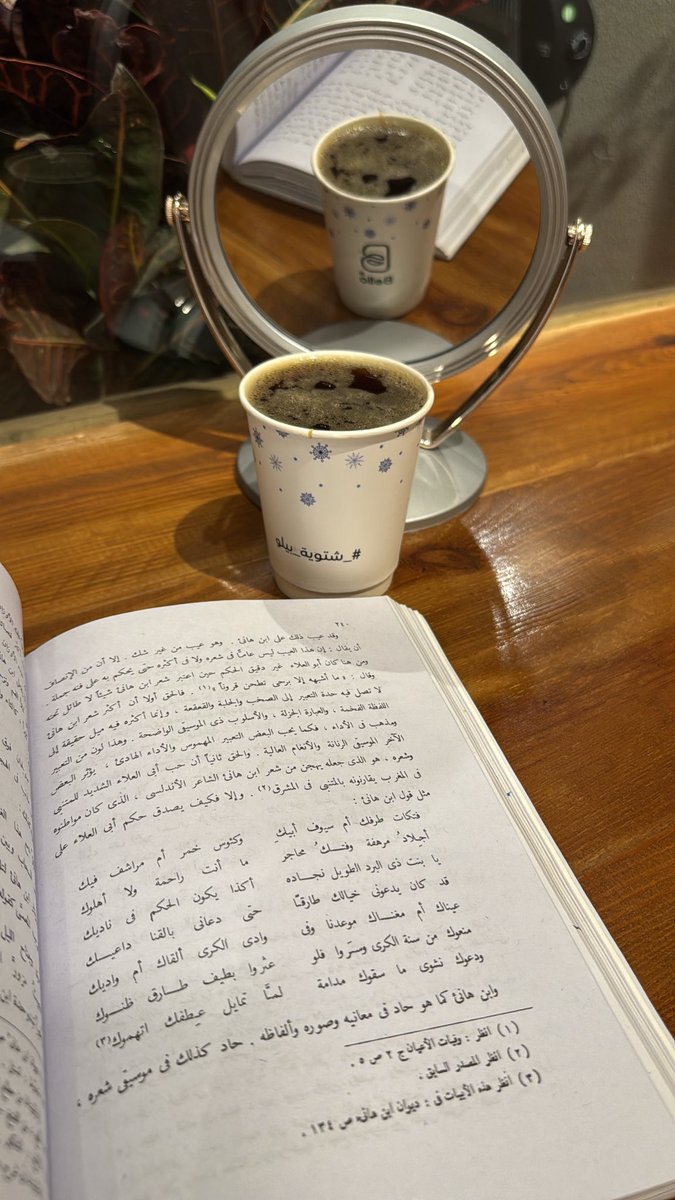 #_شتوية_بيلو
٢٤٠
وقد عيب ذلك على ابن هانئ . وهو عيب من غير شك . إلا أن من الإنصاف
أن يقال : إن هذا العيب ليس عامًّا فى شعره ولا فى أكثره حتى يحكم به على فنه جملة .
ومن هنا كان أبو العلاء غير دقيق الحكم حين اعتبر شعر ابن هانئ شيئًا لا طائل تحته
وقال : « ما أشبهه إلا برحى تطحن قروناً »(١) . فالحق أولا أن أكثر شعر ابن هانئ
لا تصل فيه حدة التعبير إلى الصخب والجلبة والقعقعة . وإنما أكثره فيه ميل حقيقة إلى
اللفظة الفخمة ، والعبارة الجزلة ، والأسلوب ذى الموسيقى الواضحة . وهذا لون من التعبير
ومذهب فى الأداء . فكما يحب البعض التعبير المهموس والأداء الهادئ ، يؤثر البعض
الآخر الموسيقى الرنانة والأنغام العالية . والحق ثانياً أن حب أبى العلاء الشديد للمتنبى
وشعره ، هو الذى جعله يهجن من شعر ابن هانئ الشاعر الأندلسى ، الذى كان مواطنوه
فى المغرب يقارنونه بالمتنبى فى المشرق(٢) . وإلا فكيف يصدق حكم أبى العلاء على
مثل قول ابن هانئ :
فتكات طرفك أم سيوف أبيك وكئوس خمر أم مراشف فيك
أجلادُ مرهفة وفتكُ محاجر ما أنت راحمة ولا أهلوك
يا بنت ذى البرد الطويل نجاده أكذا يكون الحكم فى ناديك
قد كان يدعونى خيالك طارقًا حتى دعانى بالقنا داعيك
عيناك أم مغناك موعدنا وفى وادى الكرى ألقاك أم واديك
منعوك من سنة الكرى وسرَوا فلو عثروا بطيف طارق ظنوك
ودعوك نشوى ما سقوك مدامة لمَّا تمايل عيطفك اتهموك(٣)
وابن هانئ كما هو حاد فى معانيه وصوره وألفاظه . حاد كذلك فى موسيقى شعره ،
(١) انظر : وفيات الأعيان ج ٢ ص ٥ .
(٢) انظر المصدر السابق .
(٣) انظر هذه الأبيات فى : ديوان ابن هانئ ص ١٣٤ .